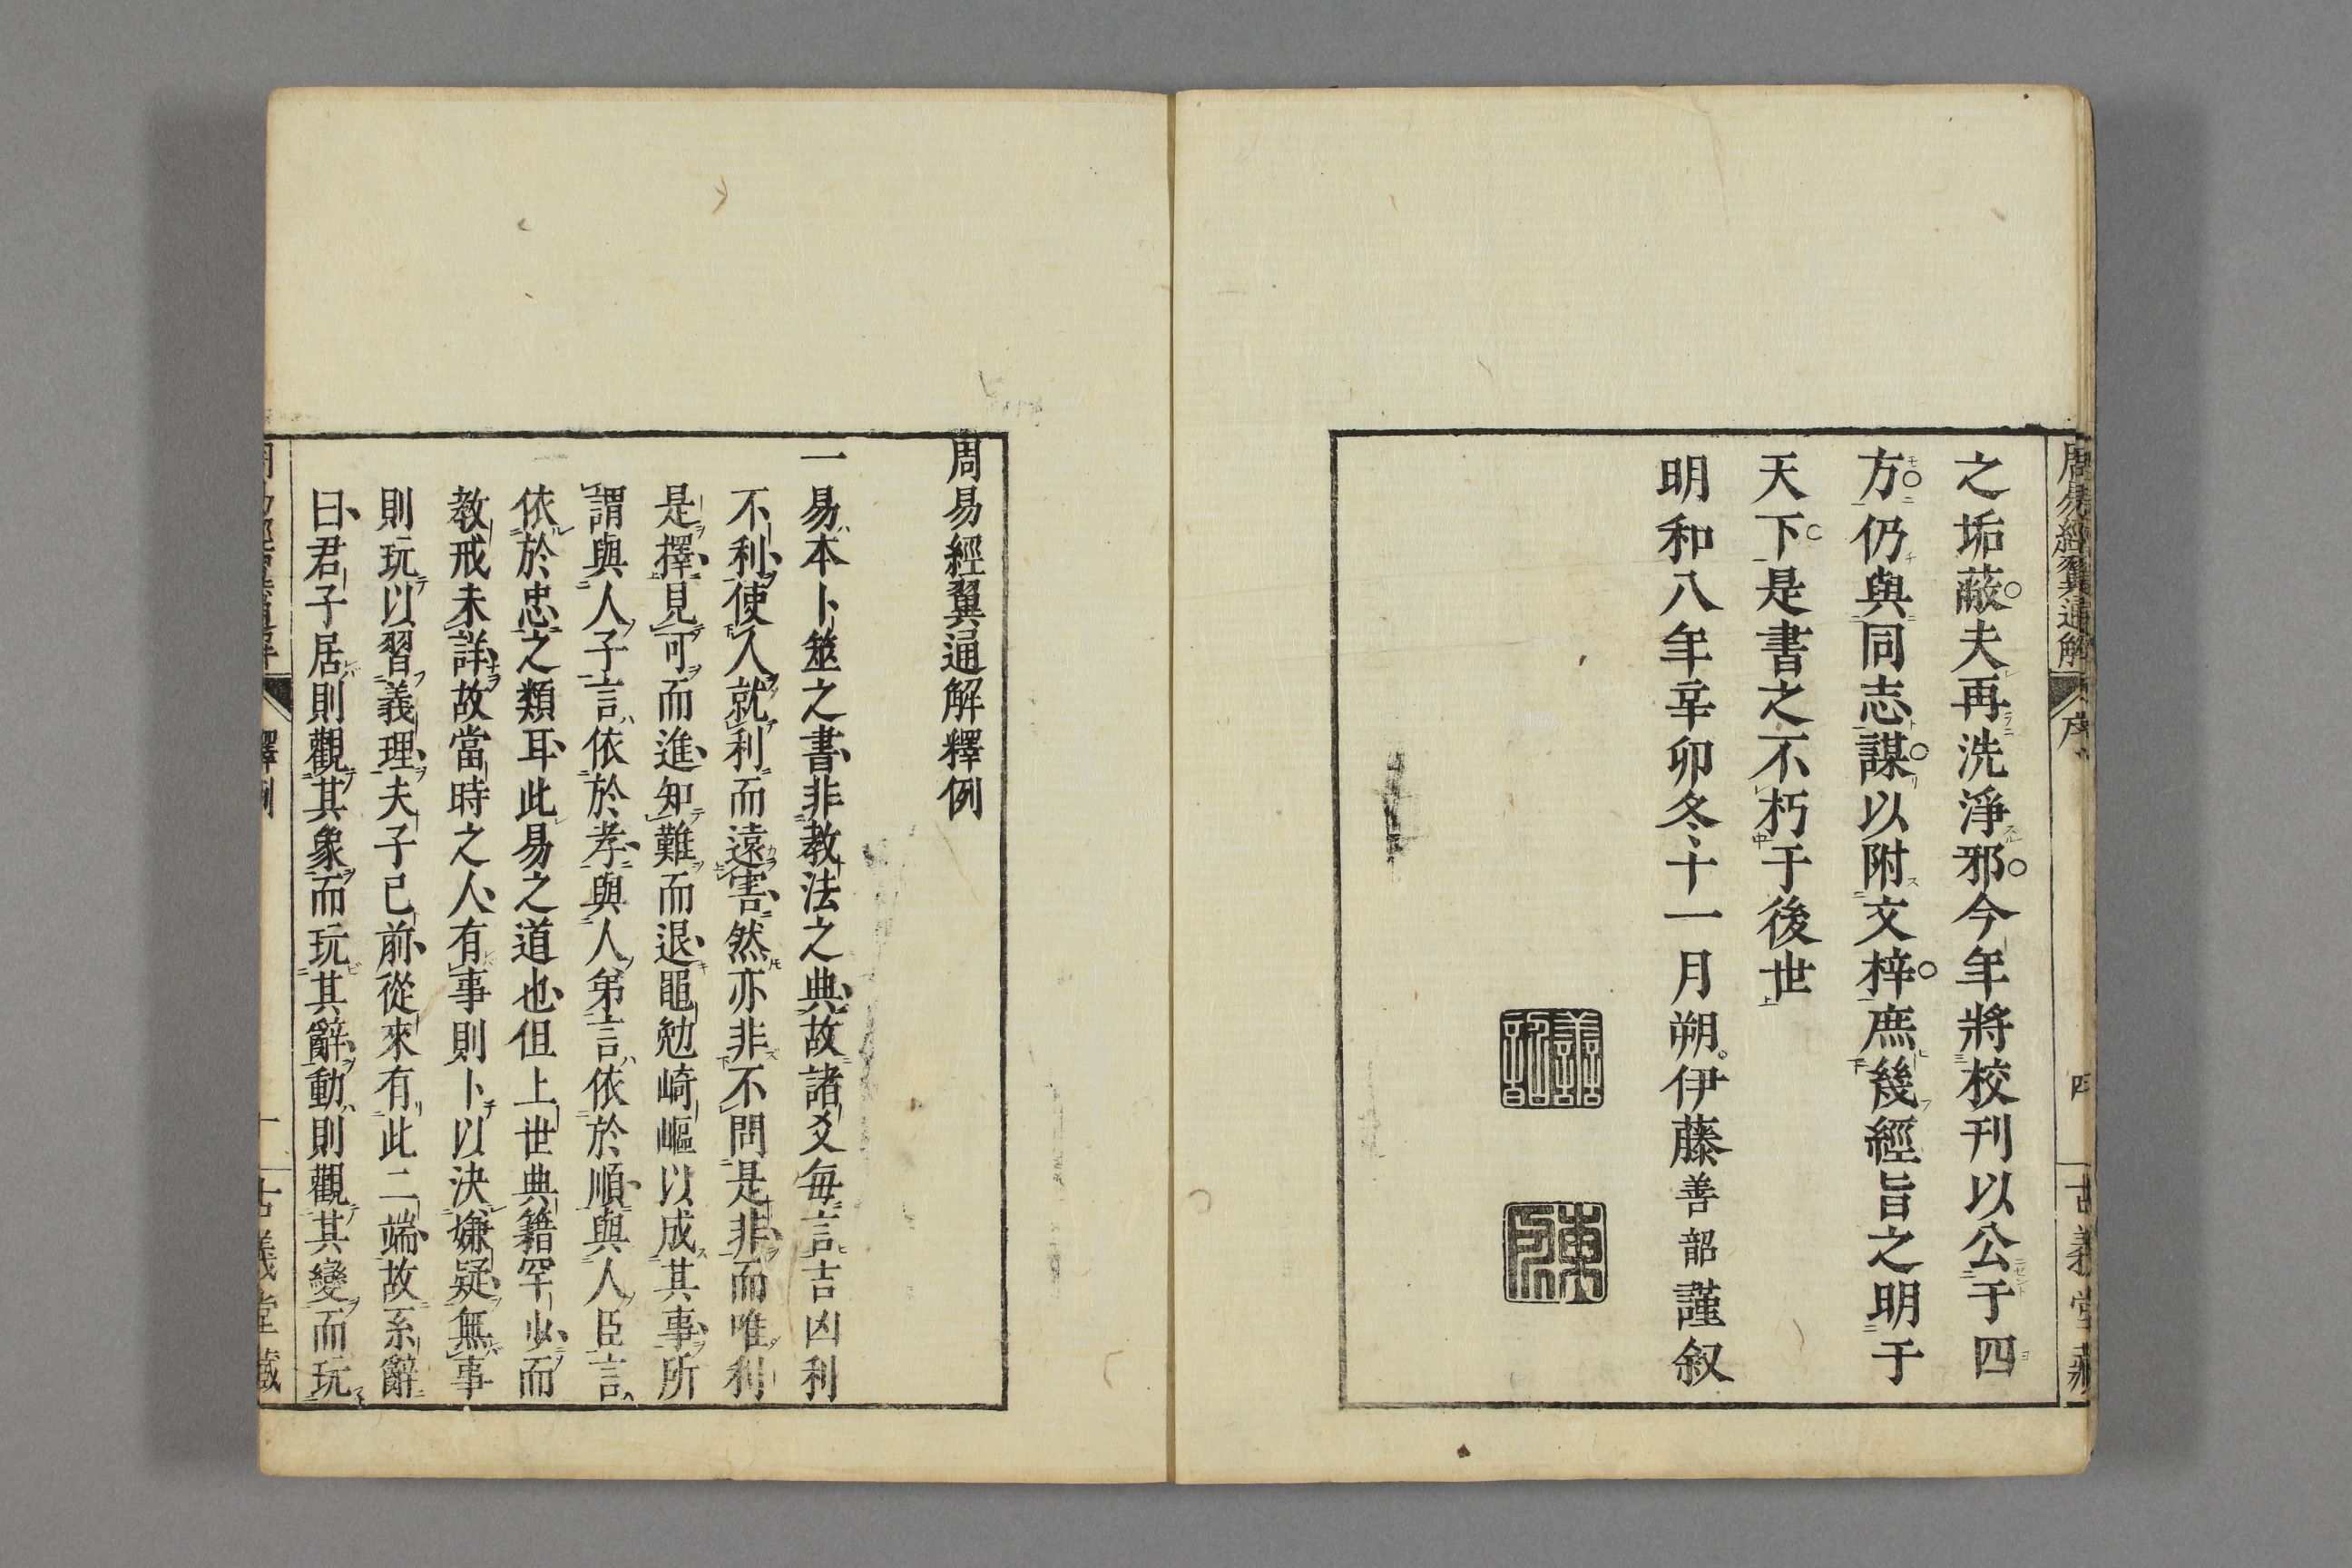 周易經翼通解 序 四 古義堂藏
之垢蔽夫再洗淨邪今年將校刊以公于四
方仍與同志謀以附文梓庶幾經旨之明于
天下是書之不朽于後世
明和八年辛卯冬十一月朔伊藤善韶謹叙
周易經翼通解釋例
一易本卜筮之書非教法之典故諸爻每言吉凶利
不利使人就利而遠害然亦非不問是非而唯利
是擇見可而進知難而退黽勉崎嶇以成其事所
謂與人子言依於孝與人弟言依於順與人臣言
依於忠之類耳此易之道也但上世典籍罕少而
教戒未詳故當時之人有事則卜以決嫌疑無事
則玩以習義理夫子已前從來有此二端故系辭
曰君子居則觀其象而玩其辭動則觀其變而玩
釋例 一 古義堂藏